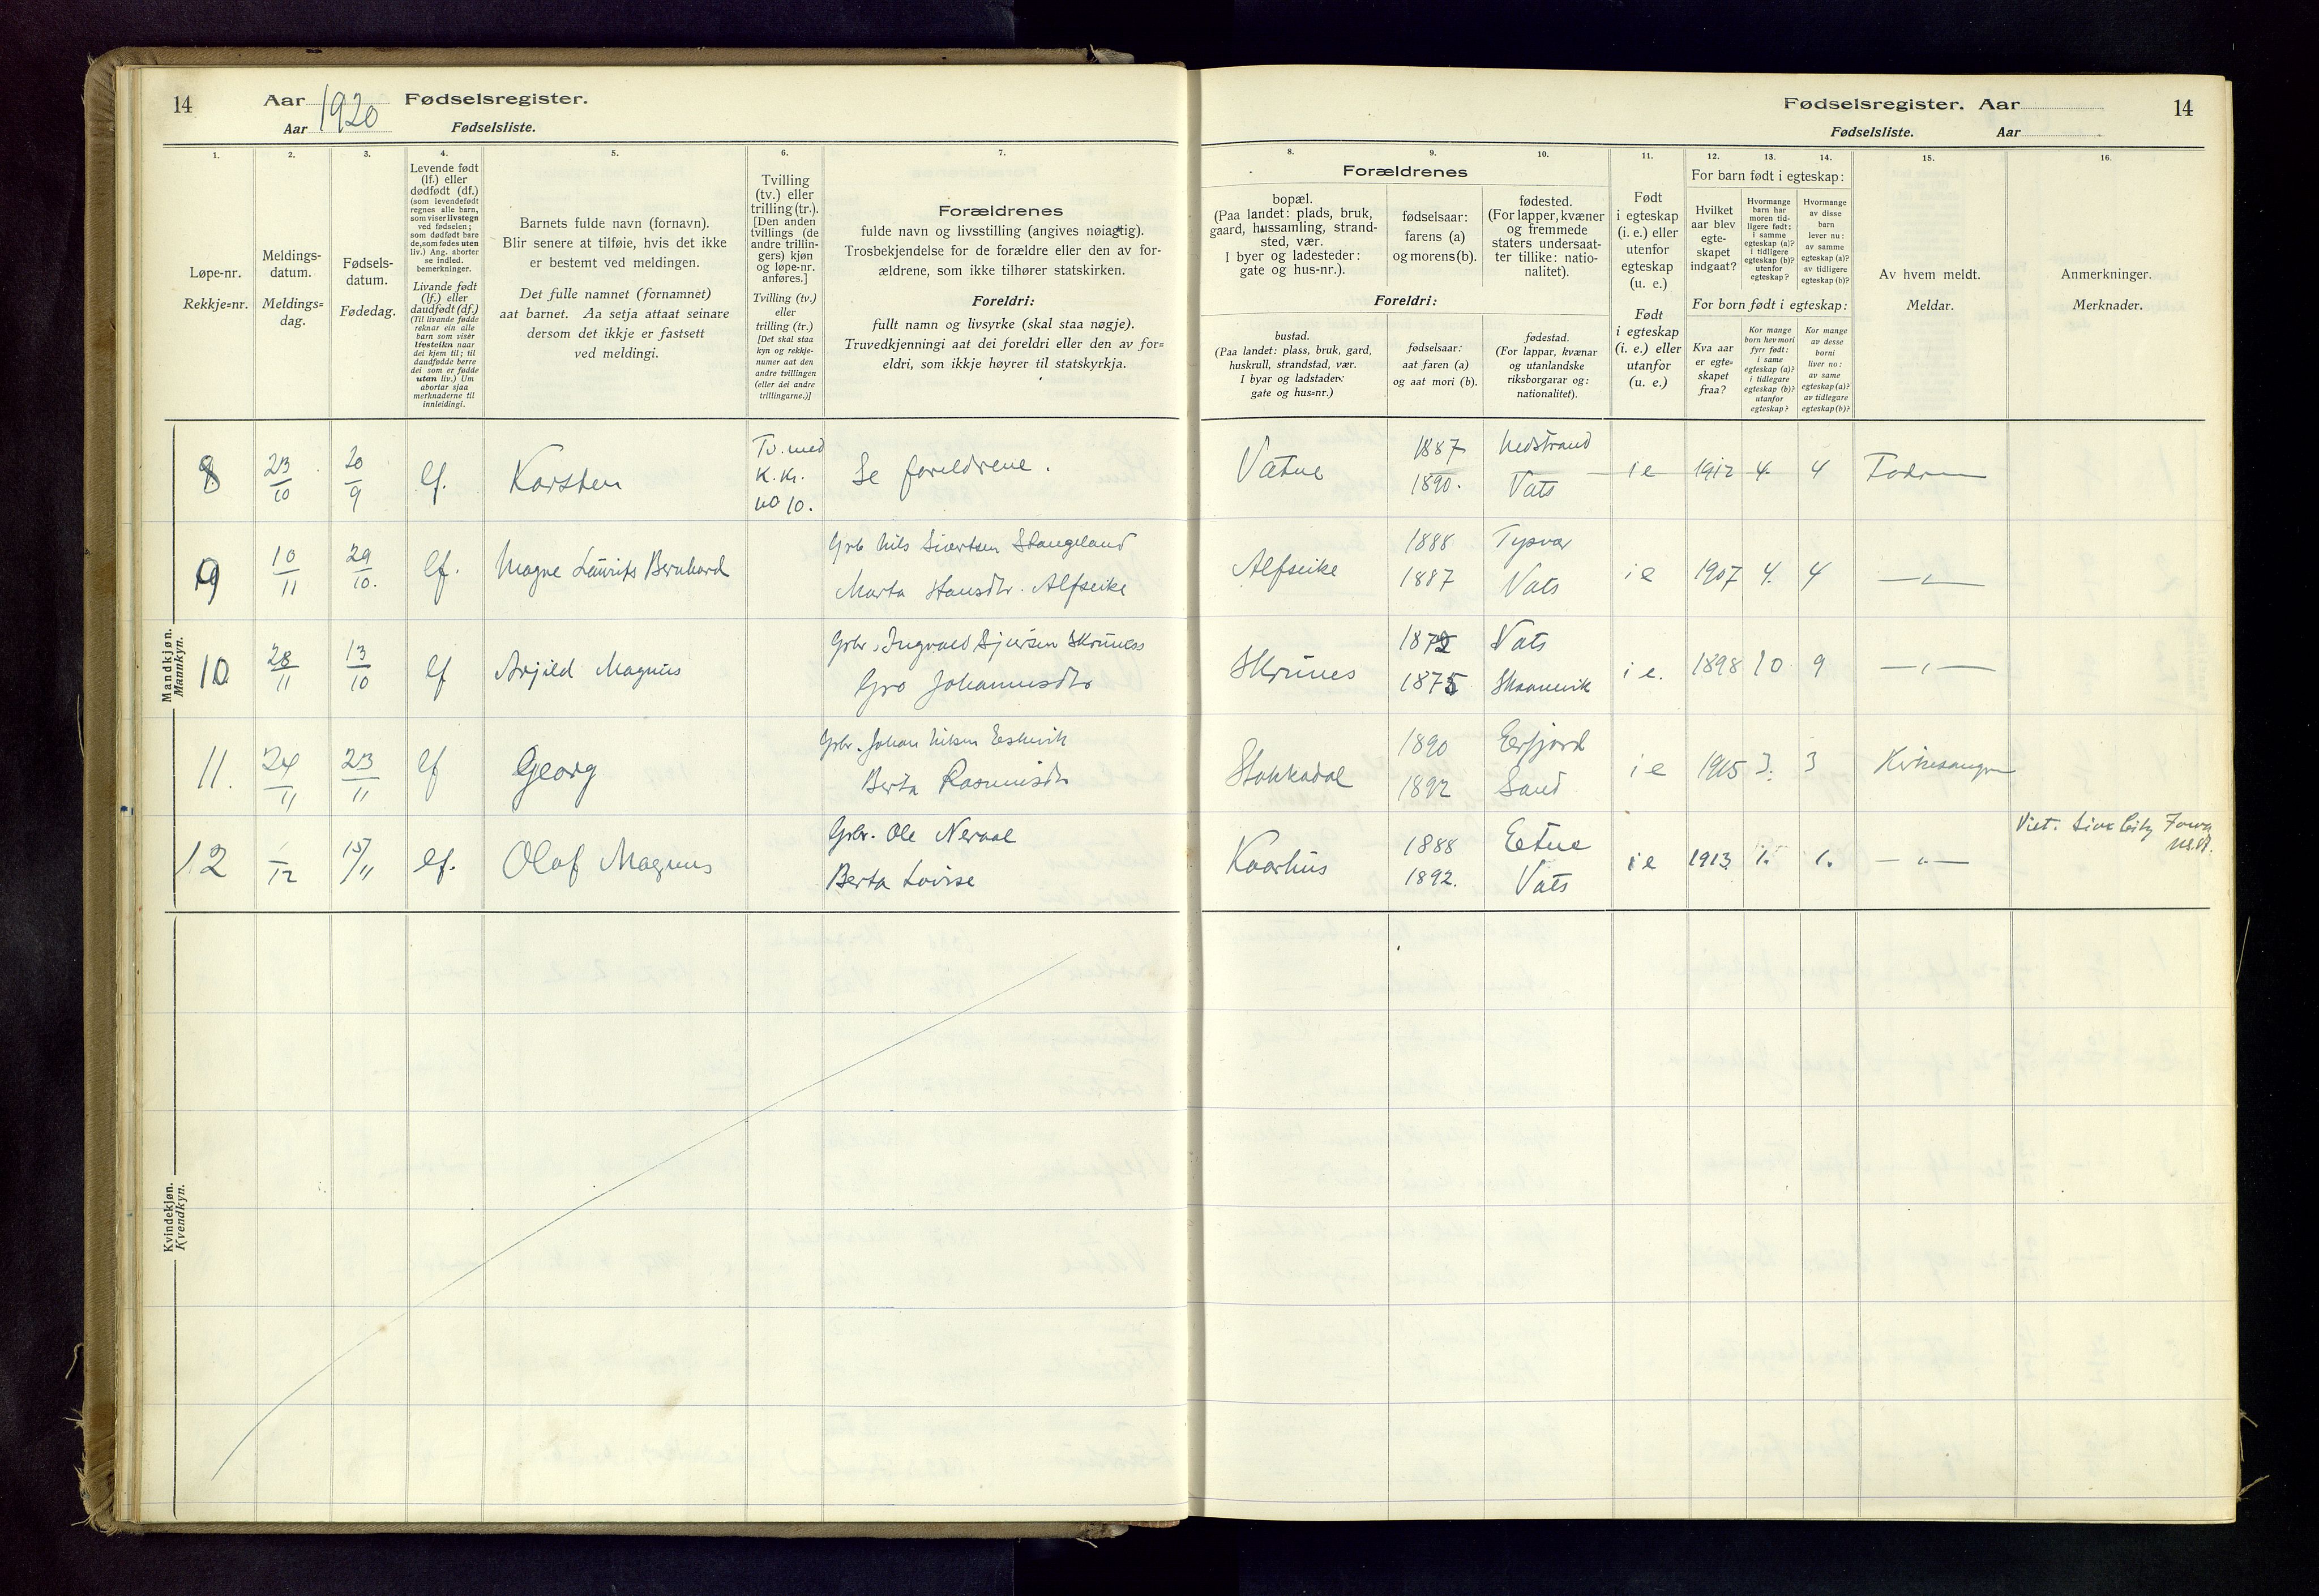 14
Aar 1920 Fødselsregister.
Aar Fødselsliste.
Fødselsregister. Aar
Fødselsliste. Aar
14
1.
Løpe-nr.
Rekkje=nr.
2.
Meldings-
datum.
Meldings=
dag.
3.
Fødsels-
datum.
Fødedag.
4.
Levende født
(lf.) eller
dødfødt (df.)
(som levendefødt
regnes alle barn,
som viser livstegn
ved fødselen;
som dødfødt bare
de, som fødes uten
liv.) Ang. aborter
se indled.
bemerkninger.
Livande født
(lf.) eller
daudfødt (df.)
(Til livande fødde
reknar ein alle
barn som viser
livsteikn naar
dei kjem til; til
daudfødde berre
dei som er fødde
utan liv.) Um
abortar sjaa
merknaderne til
innleidingi.
5.
Barnets fulde navn (fornavn).
Blir senere at tilføie, hvis det ikke
er bestemt ved meldingen.
Det fulle namnet (fornamnet)
aat barnet. Aa setja attaat seinare
dersom det ikkje er fastsett
ved meldingi.
6.
Tvilling
(tv.) eller
trilling (tr.).
[Den anden
tvillings (de
andre trillin-
gers) kjøn
og løpe-nr.
anføres.]
Tvilling (tv.)
eller
trilling (tr.)
[Det skal staa
kyn og rekkje-
numer aat den
andre tvillingen
(eller dei andre
trillingarne.)]
7.
Forældrenes
fulde navn og livsstilling (angives nøiagtig).
Trosbekjendelse for de forældre eller den av for-
ældrene, som ikke tilhører statskirken.
Foreldri:
fullt namn og livsyrke (skal staa nøgje).
Truvedkjenningi aat dei foreldri eller den av for=
eldri, som ikkje høyrer til statskyrkja.
8.
Forældrenes
bopæl.
(Paa landet: plads, bruk,
gaard, hussamling, strand-
sted, vær.
I byer og ladesteder:
gate og hus-nr.).
Foreldri:
bustad.
(Paa landet: plass, bruk, gard,
huskrull, strandstad, vær.
I byar og ladstader:
gate og hus=nr.)
9.
fødselsaar:
farens (a)
og morens (b).
fødselsaar:
aat faren (a)
og aat mori (b).
10.
fødested.
(For lapper, kvæner
og fremmede
staters undersaat-
ter tillike: natio-
nalitet).
fødestad.
(For lappar, kvænar
og utanlandske
riksborgarar og:
nationalitet).
11.
Født
i egteskap
(i. e.) eller
utenfor
egteskap
(u. e.)
Født
i egteskap
(i. e.) eller
utanfor
(u. e.)
12. 13. 14.
For barn født i egteskap:
Hvilket
aar blev
egte-
skapet
indgaat?
Hvormange
barn har
moren tid-
ligere født:
i samme
egteskap (a)?
i tidligere
egteskap (b)?
utenfor
egteskap?
Hvormange
av disse
barn
lever nu:
av samme
egteskap (a)?
av tidligere
egteskap (b)?
For born født i egteskap:
Kva aar
er egte-
skapet
fraa?
Kor mange
born hev mori
fyrr født:
i same
egteskap (a)?
i tidlegare
egteskap (b)?
utanfor
egteskap?
Kor mange
av desse
borni
liver no:
av same
egteskap (a)?
av tidlegare
egteskap (b)?
15.
Av hvem meldt.
Meldar.
16.
Anmerkninger.
Merknader.
Mandkjøn.
Mannkyn.
8 23/10 20/9 lf. Karsten
Tv. med
K. Kr.
no 10.
Se foreldrene.
Vatne 1887 Nedstrand
1890. Vats
i e 1912 4. 4
9 10/11 29/10. lf. Magne Laurits Bernhard
Grb Nils Sivertsen Stangeland
Marta Hansdtr. Alfseike
Alfseike 1888 Tysvær
1887 Vats
i e 1907 4. 4 — " —
10 28/11 13/10 lf Arfild Magnus
Gbr. Ingvald Sjursen Skrunes
Gro Johannesdtr
Skrunes 1872 Vats
1875 Skaanevik
i e. 1898 10 9 — " —
11. 24/11 23/11 lf Georg
Gbr. Johan Nilsen Eskevik
Berta Rasmusdtr
Stakkadal 1890 Erfjord
1892 Sand
i e 1915 3. 3 Kirkesanger
12 /12 15/11 lf. Olaf Magnus
Gbr. Ole Neraal
Berta Lovise
Kaarhus 1888 Etne
1892. Vats
i e 1913 1. 1. — " —
Viet. Sioux City Iowa
U.S.A.
Kvindekjøn.
Kvendkyn.